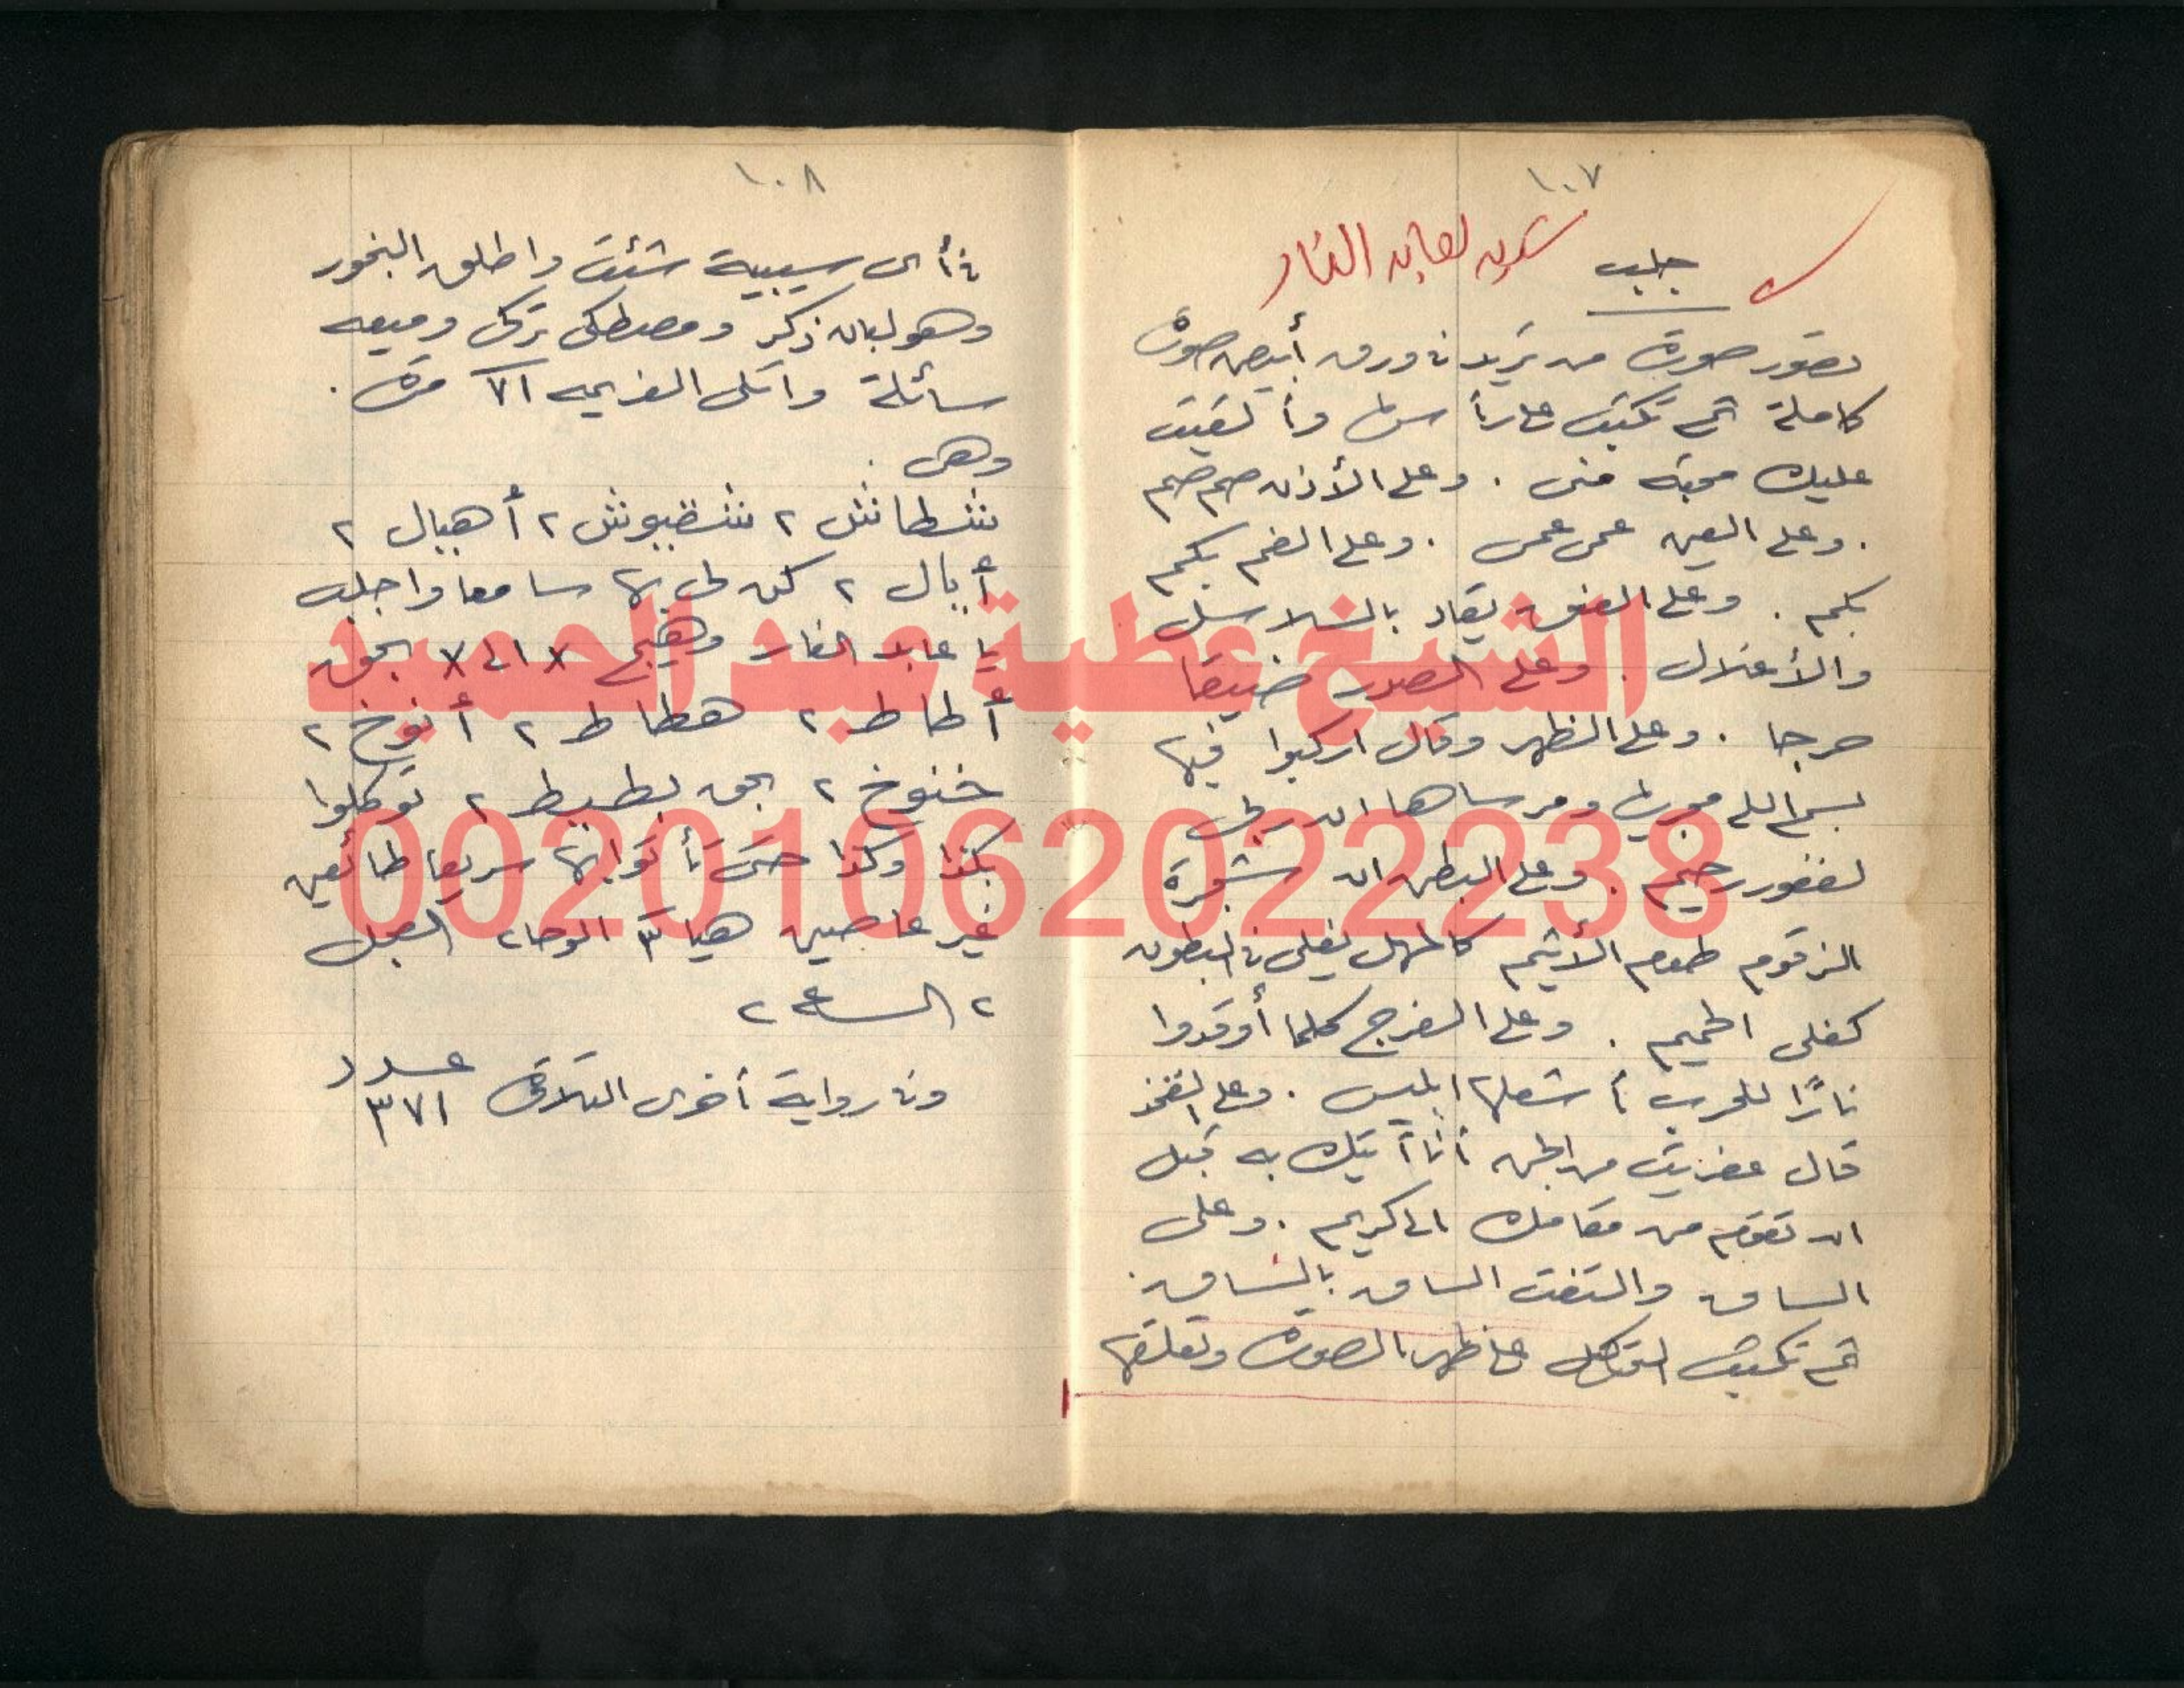 ١٠٧
جلب
لعابد النار
تصور صورة من تريد فى ورق أبيض صورة
كاملة ثم تكتب على رأسها وألقيت
عليك محبة منى . وعلى الأذن صم صم
. وعلى العين عمى عمى . وعلى الفم بكم
بكم . وعلى العنق يقاد بالسلاسل
والأغلال . وعلى الصدر ضيقا
حرجا . وعلى الظهر وقال اركبوا فيها
بسم الله مجريها ومرساها ان ربى
لغفور رحيم . وعلى البطن ان شجرة
الزقوم طعام الأثيم كالمهل يغلى فى البطون
كغلى الحميم . وعلى الفرج كلما أوقدوا
نارًا للحرب أشعلها ابليس . وعلى الفخذ
قال عفريت من الجن أنا آتيك به قبل
ان تقوم من مقامك الى كريم . وعلى
الساق والتفت الساق بالساق .
ثم تكتب التوكل على ظهر الصورة وتعلقها
١٠٨
فى أى سيبية شئت واطلق البخور
وهو لبان ذكر ومصطكى تركى وميعه
سائلة واتلى العزيمه ٧١ مرة .
وهى .
شطاش ٢ شقيوش ٢ أهيال ٢
أيال ٢ كن لى بها سامعا واجلب
يا عابد النار وهيج x الى x بحق
أطاط ٢ هطاط ٢ أنوخ ٢
خنوخ ٢ بحق بطيط ٢ توكلوا
بكذا وكذا حتى تأتوا بها سريعا طائعين
غير عاصين هيا ٣ الوحا ٢ العجل
٢ الساعة ٢
وفى رواية أخرى التلاوة عدد
٣٧١
الشيخ عطية عبد الحميد
00201062022238